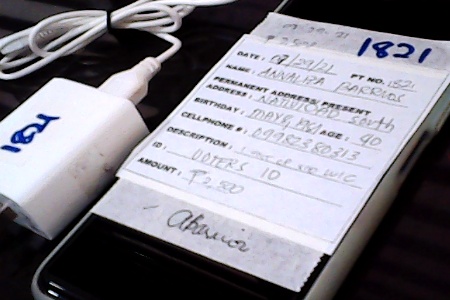 1821
DATE: 09/29/21 PT NO. 1821
NAME: ANNALIZA BARRIOS
PERMANENT ADDRESS/PRESENT
ADDRESS: NATIVIDAD South
BIRTHDAY: MAY 8, 1981 AGE: 40
CELLPHONE #: 09982380313
DESCRIPTION: W/C
ID: VOTERS ID
AMOUNT: ₱2,500
1821